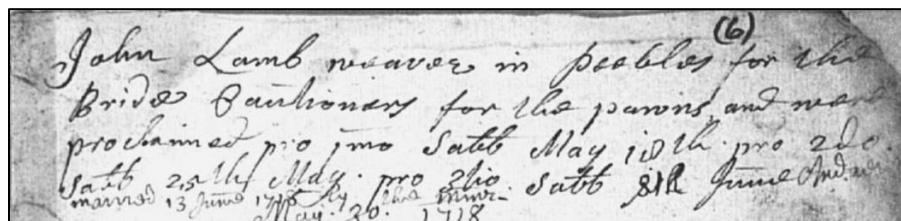 (6)
John Lamb weaver in Peebles for the
Bride Cautioners for the pawns, and were
proclaimed pro imo Sabb May 18th pro 2do
Sabb 25th May. pro 3tio Sabb 8th June
married 13 June 1718 By the Minr.
May. 30. 1718